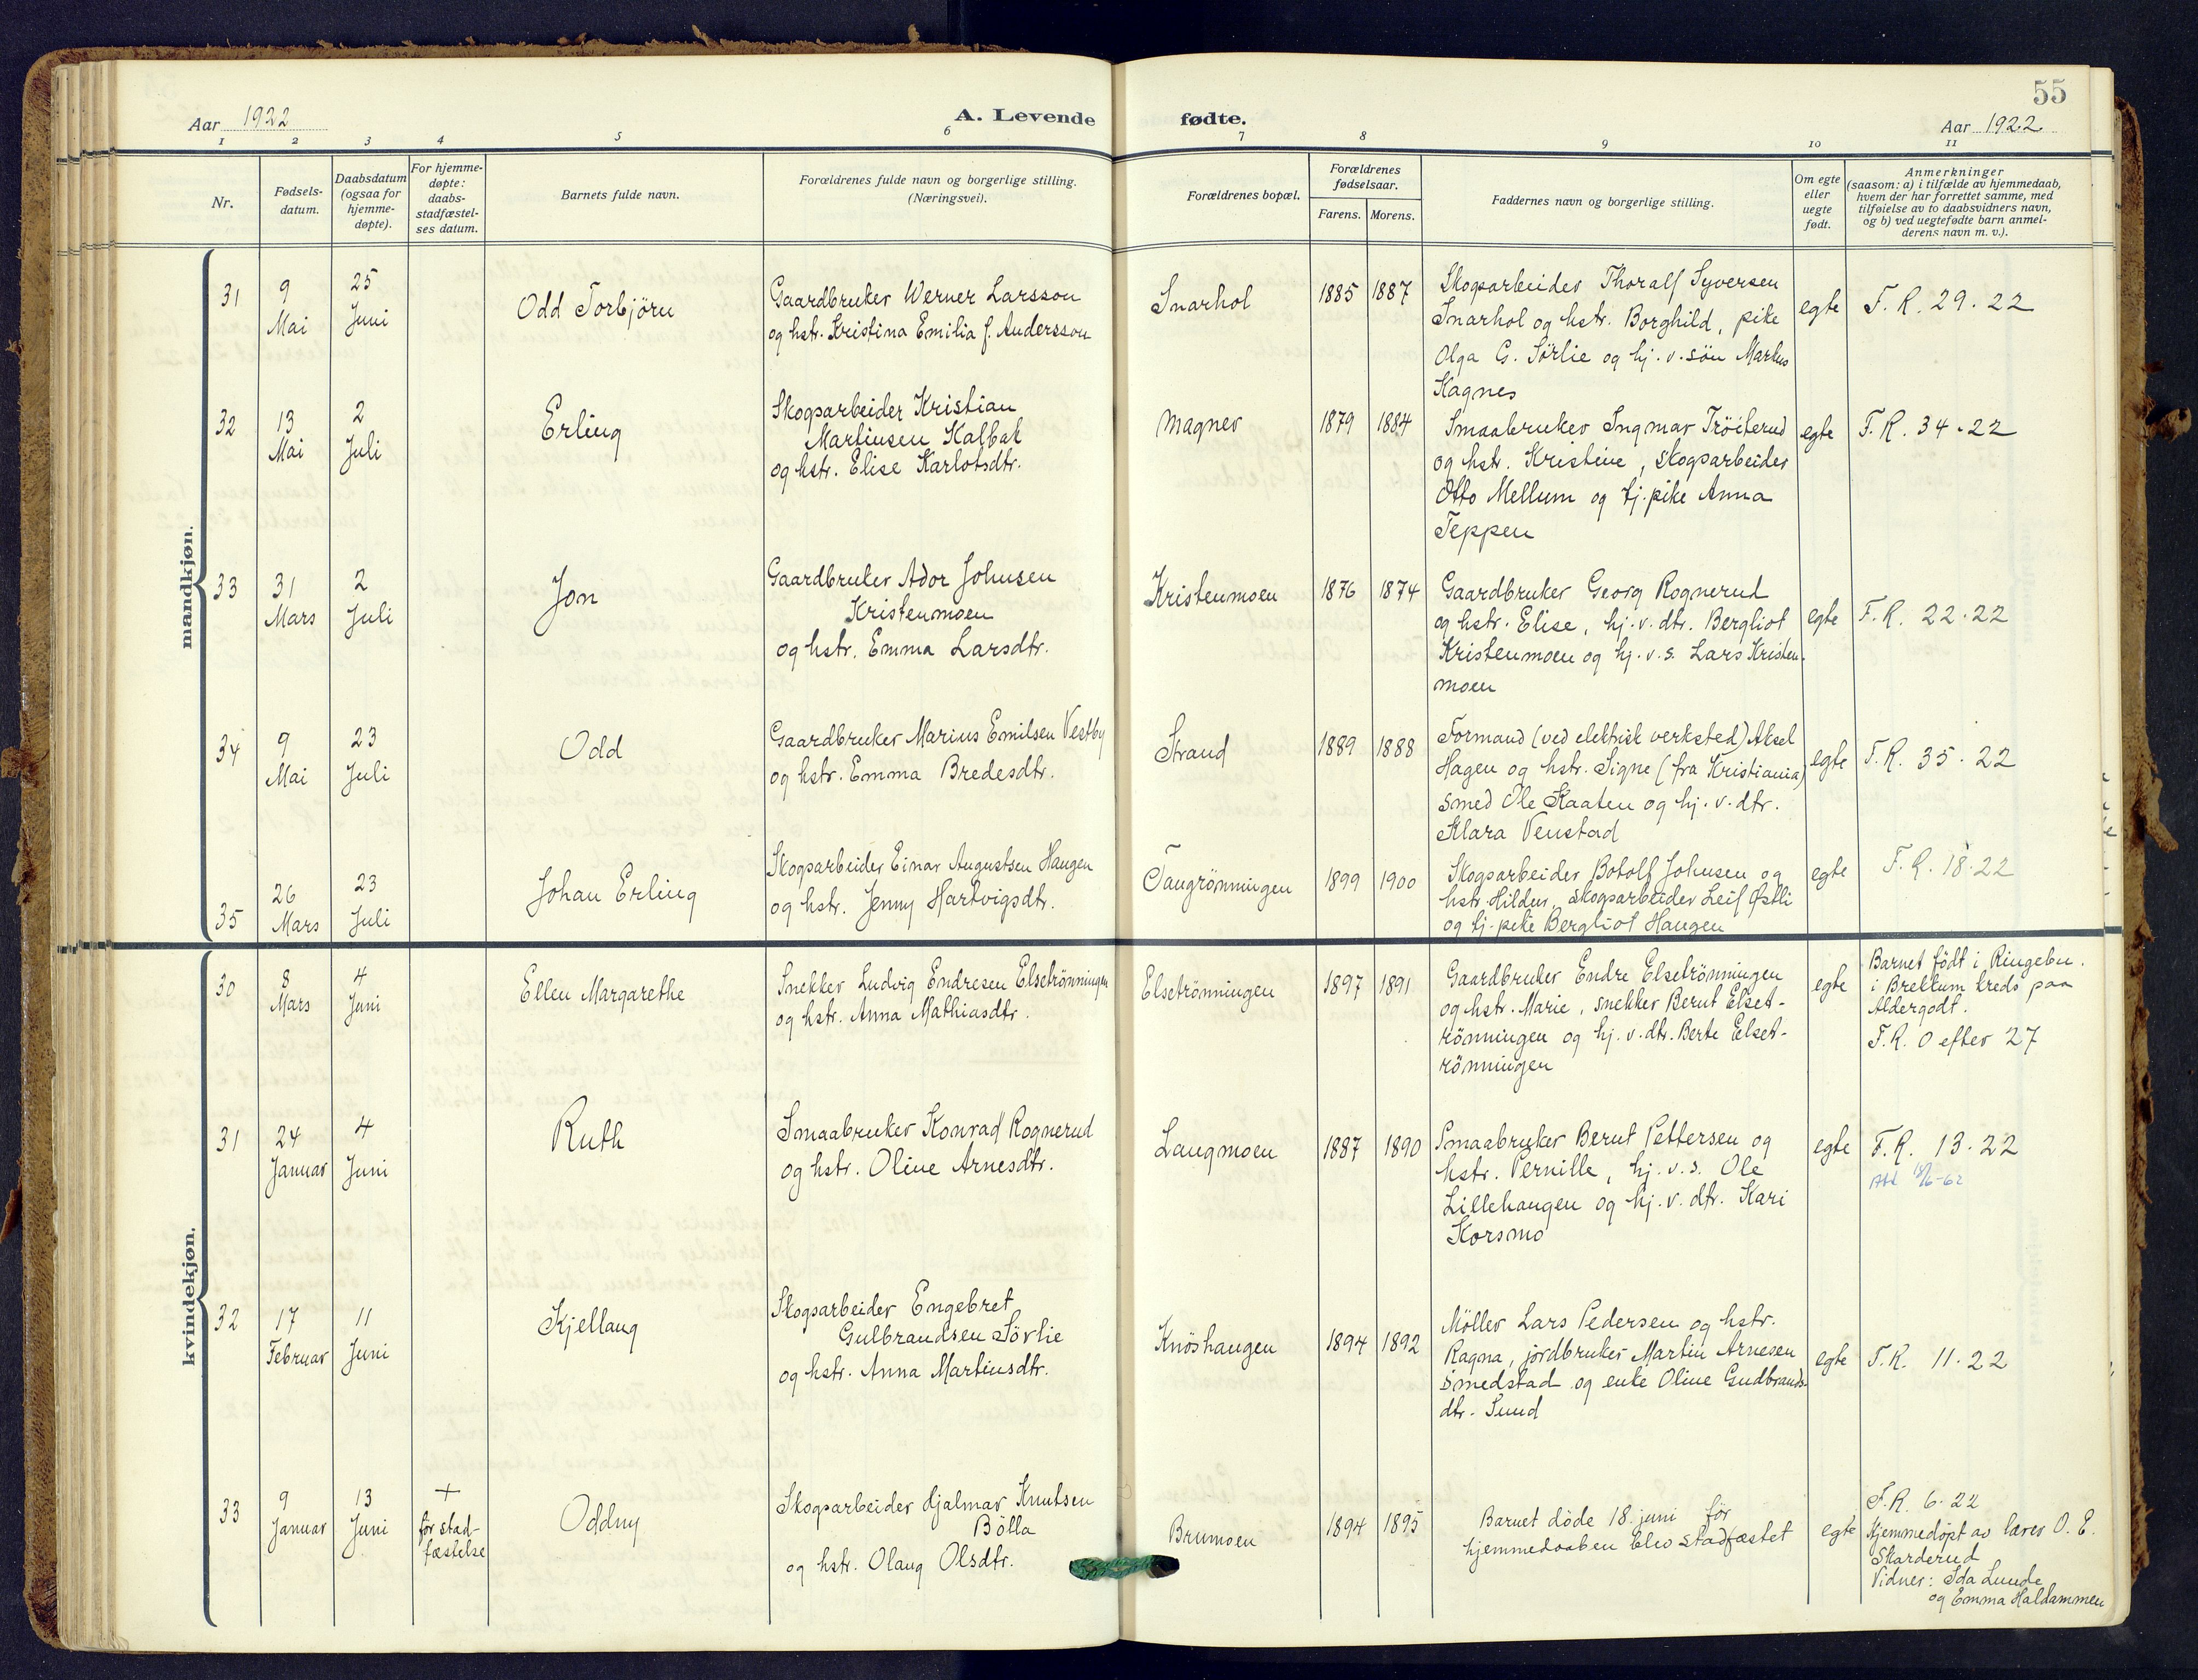 55
Aar 1922
A. Levende fødte.
Aar 1922
1 2 3 4 5 6 7 8 9 10 11
Nr.
Fødsels-
datum.
Daabsdatum
(ogsaa for
hjemme-
døpte).
For hjemme-
døpte:
daabs-
stadfæstel-
ses datum.
Barnets fulde navn.
Forældrenes fulde navn og borgerlige stilling.
(Næringsvei).
Forældrenes bopæl.
Forældrenes
fødselsaar.
Farens. Morens.
Faddernes navn og borgerlige stilling.
Om egte
eller
uegte
født.
Anmerkninger
(saasom: a) i tilfælde av hjemmedaab,
hvem der har forrettet samme, med
tilføielse av to daabsvidners navn,
og b) ved uegtefødte barn anmel-
derens navn m. v.).
mandkjøn.
31
9
Mai
25
Juni
Odd Torbjörn
Gaardbruker Werner Larsson
og hstr. Kristina Emilia f. Andersson
Snarhol
1885 1887
Skogsarbeider Thoralf Syversen
Snarhol og hstr. Borghild, pike
Olga G. Sørlie og hj. v. søn Markus
Kagnes
egte
F. R. 29. 22
32
13
Mai
2
Juli
Erling
Skogsarbeider Kristian
Martinsen Kalbak
og hstr. Elise Karlotsdtr.
Magner
1879 1884
Smaabruker Ingmar Tröiterud
og hstr. Kristine, skogsarbeider
Otto Mellum og tj. pike Anna
Teppen
egte
F. R. 34. 22
33
31
Mars
2
Juli
Jon
Gaardbruker Ador Johnsen
Kristenmoen
og hstr. Emma Larsdtr.
Kristenmoen
1876 1874
Gaardbruker Georg Rognerud
og hstr. Elise, hj. v. dtr. Bergliot
Kristenmoen og hj. v. s. Lars Kristen-
moen
egte
F. R. 22. 22
34
9
Mai
23
Juli
Odd
Gaardbruker Marius Emilsen Vestby
og hstr. Emma Bredesdtr.
Strand
1889 1888
Formand (ved elektrisk verksted) Aksel
Hagen og hstr. Signe (fra Kristiania)
smed Ole Kaaten og hj. v. dtr.
Klara Venstad
egte
F. R. 35. 22
35
26
Mars
23
Juli
Johan Erling
Skogsarbeider Einar Augustsen Haugen
og hstr. Jenny Hartvigsdtr.
Taugrönningen
1899 1900
Skogsarbeider Botolf Johnsen og
hstr. Hildur, skogsarbeider Leif Østli
og tj. pike Bergliot Haugen
egte
F. R. 18. 22
kvindekjøn.
30
8
Mars
4
Juni
Ellen Margarethe
Snekker Ludvig Endresen Elsetrönningen
og hstr. Anna Mathiasdtr.
Elsetrönningen
1897 1891
Gaardbruker Endre Elsetrönningen
og hstr. Marie, snekker Bernt Elset-
rönningen og hj. v. dtr. Berte Elset-
rönningen
egte
Barnet födt i Ringebu.
i Brekkum kreds paa
Aldergodt.
F. R. 0 efter 27
31
24
Januar
4
Juni
Ruth
Smaabruker Konrad Rognerud
og hstr. Oline Arnesdtr.
Langmoen
1887 1890
Smaabruker Bernt Pettersen og
hstr. Pernille, hj. v. s. Ole
Lillehaugen og hj. v. dtr. Kari
Korsmo
egte
F. R. 13. 22
32
17
Februar
11
Juni
Kjellaug
Skogsarbeider Engebret
Gulbrandsen Sörlie
og hstr. Anna Martinsdtr.
Knöshaugen
1894 1892
Möller Lars Pedersen og hstr.
Ragna, jordbruker Martin Arnesen
Smedstad og enke Oline Gudbrands-
dtr. Sund
egte
F. R. 11. 22
33
9
Januar
13
Juni
+
før stad-
fæstelse
Oddny
Skogsarbeider Hjalmar Knutsen
Bölla
og hstr. Olaug Olsdtr.
Brumoen
1894 1895
Barnet döde 18. juni før
hjemmedaaben blev stadfæstet
egte
F. R. 6. 22
Hjemmedöpt av lærer O. E.
Skarderud
Vidner: Ida Lunde
og Emma Haldammen